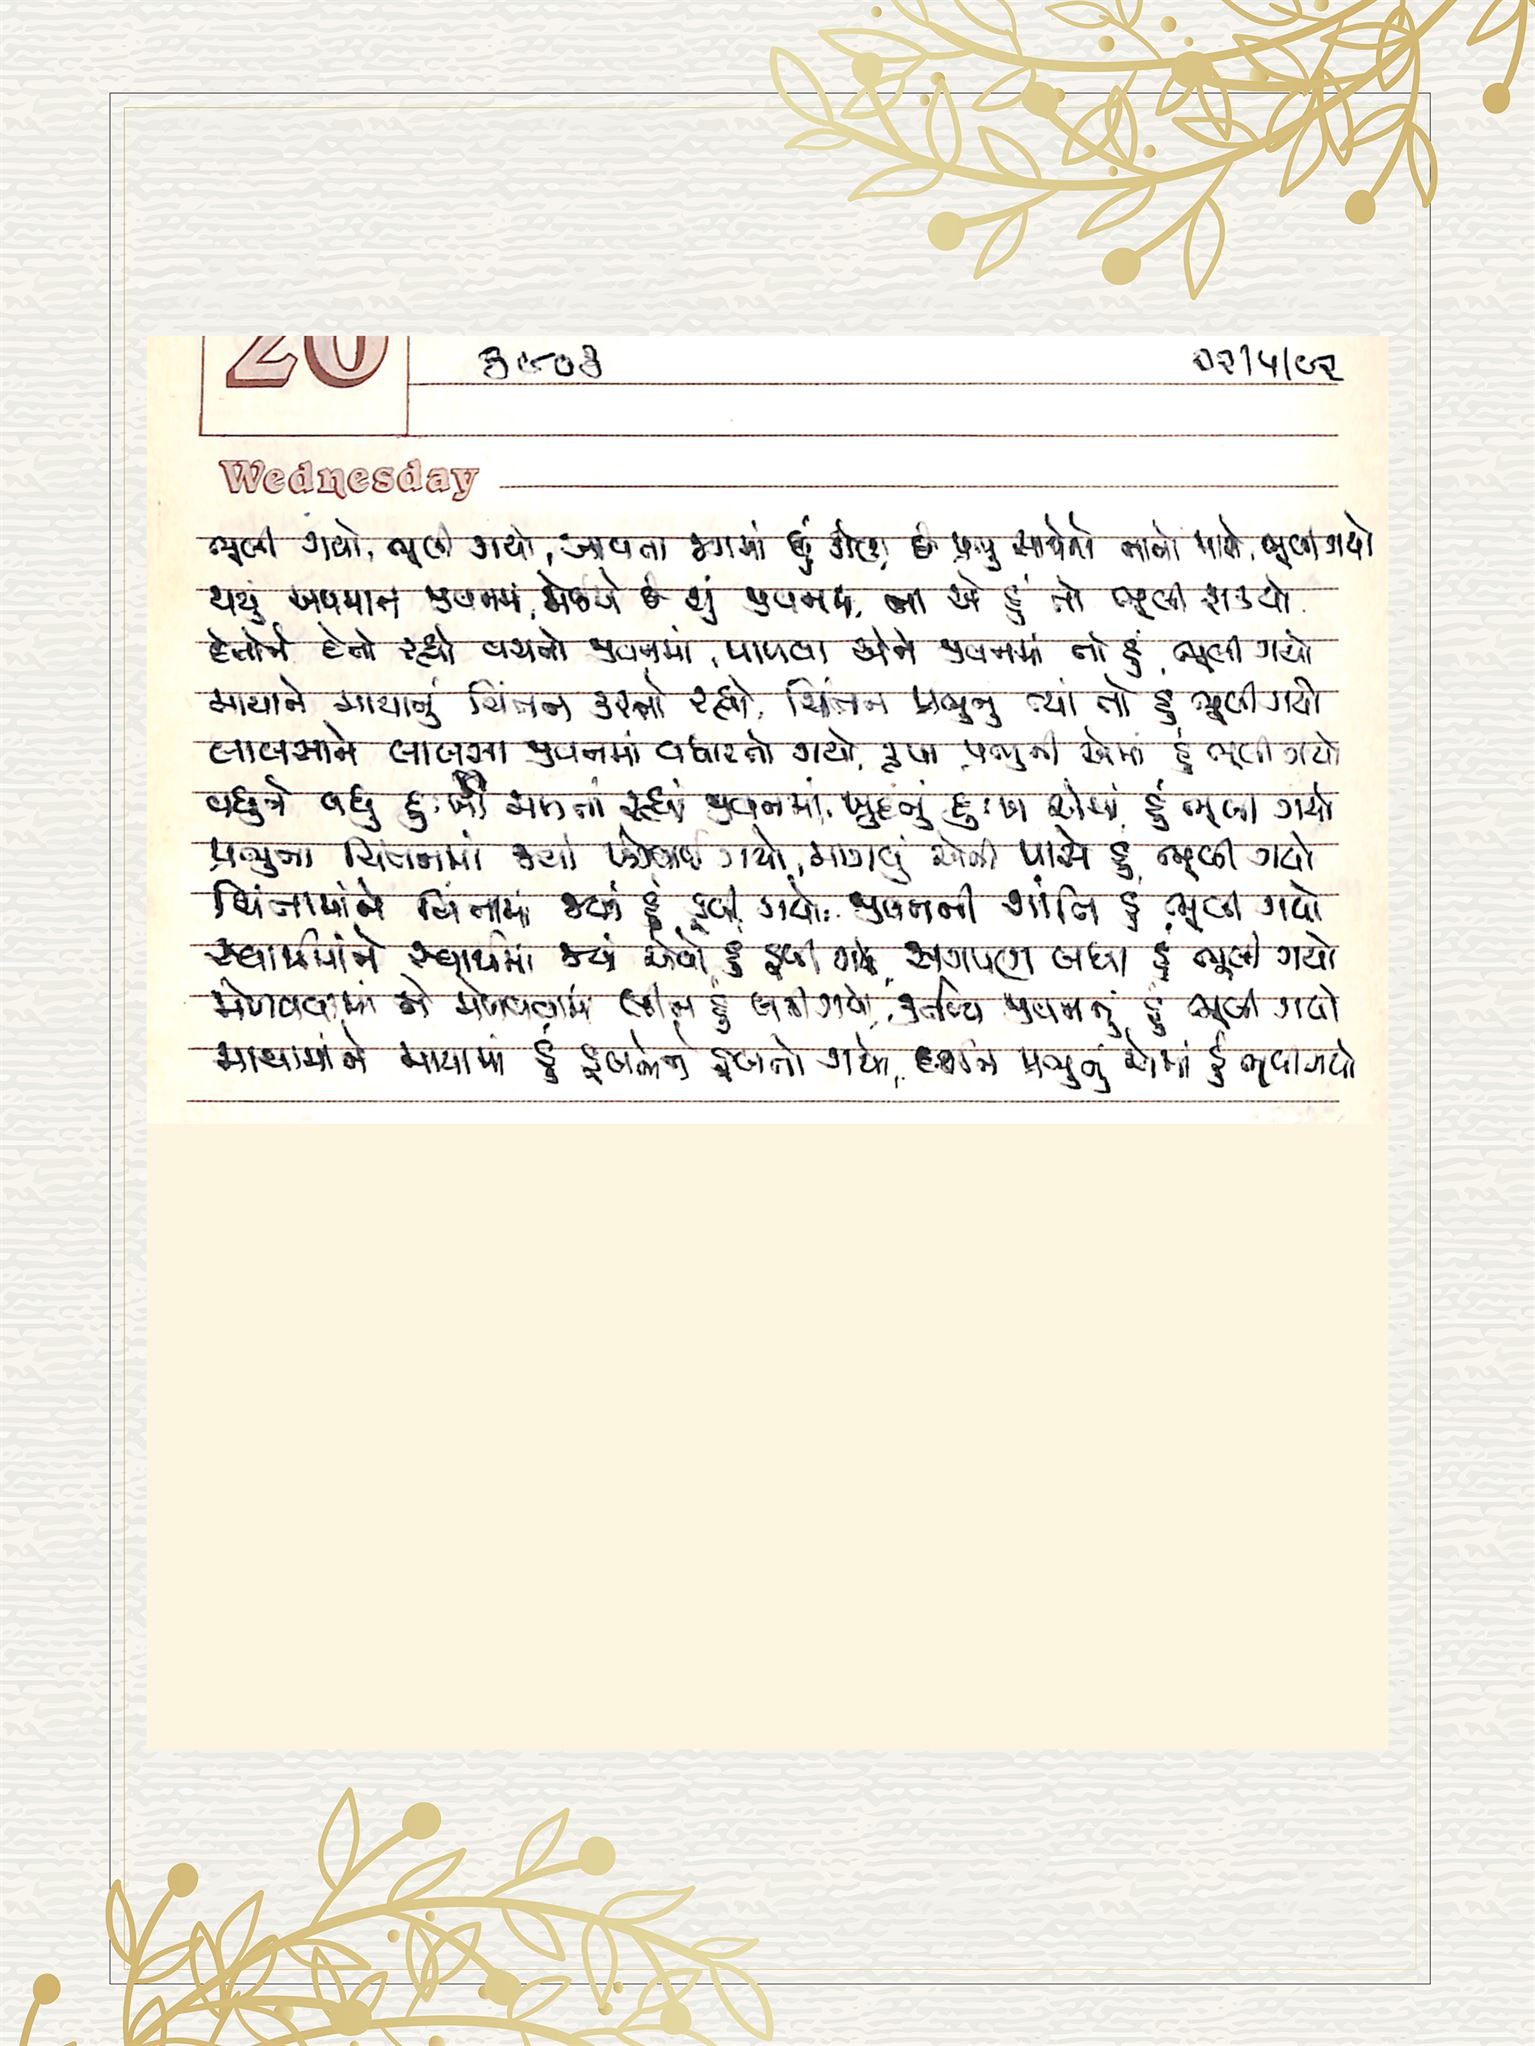 20 ૩૯૦૩ ૨૨/૫/૯૨
Wednesday
ભૂલી ગયો, ભૂલી ગયો, આવતા જગમાં હું પ્રભુ સાથેનો નાતો મારો, ભૂલી ગયો
થયું અપમાન જીવનમાં, છે શું જીવનમાં, ના એ હું તો ભૂલી શક્યો
દેતોને દેતો રહ્યો વચનો જીવનમાં, પાળવા એને જીવનમાં તો હું ભૂલી ગયો
માયાને માયાનું ચિંતન કરતો રહ્યો, ચિંતન પ્રભુનુ ત્યાં તો હું ભૂલી ગયો
લાલસાને લાલસા જીવનમાં વધારતો ગયો, કૃપા પ્રભુની એમાં હું ભૂલી ગયો
વધુને વધુ દુઃખી કરતાં રહ્યાં જીવનમાં, ખુદનું દુઃખ એમાં હું ભૂલી ગયો
પ્રભુના ચિંતનમાં જ્યાં ખોવાઈ ગયો, માગવું એની પાસે હું ભૂલી ગયો
ચિંતામાંને ચિંતામાં જ્યાં હું ડૂબી ગયો, જીવનની શાંતિ હું ભૂલી ગયો
સ્વાર્થમાંને સ્વાર્થમાં જ્યાં એવો હું ડૂબી ગયો, સગપણ બધા હું ભૂલી ગયો
મેળવવામાં ને મેળવવામાં લીન હું બની ગયો, કર્તવ્ય જીવનનું હું ભૂલી ગયો
માયામાંને માયામાં હું ડૂબતોને ડૂબતો ગયો, દર્શન પ્રભુનું એમાં હું ભૂલી ગયો